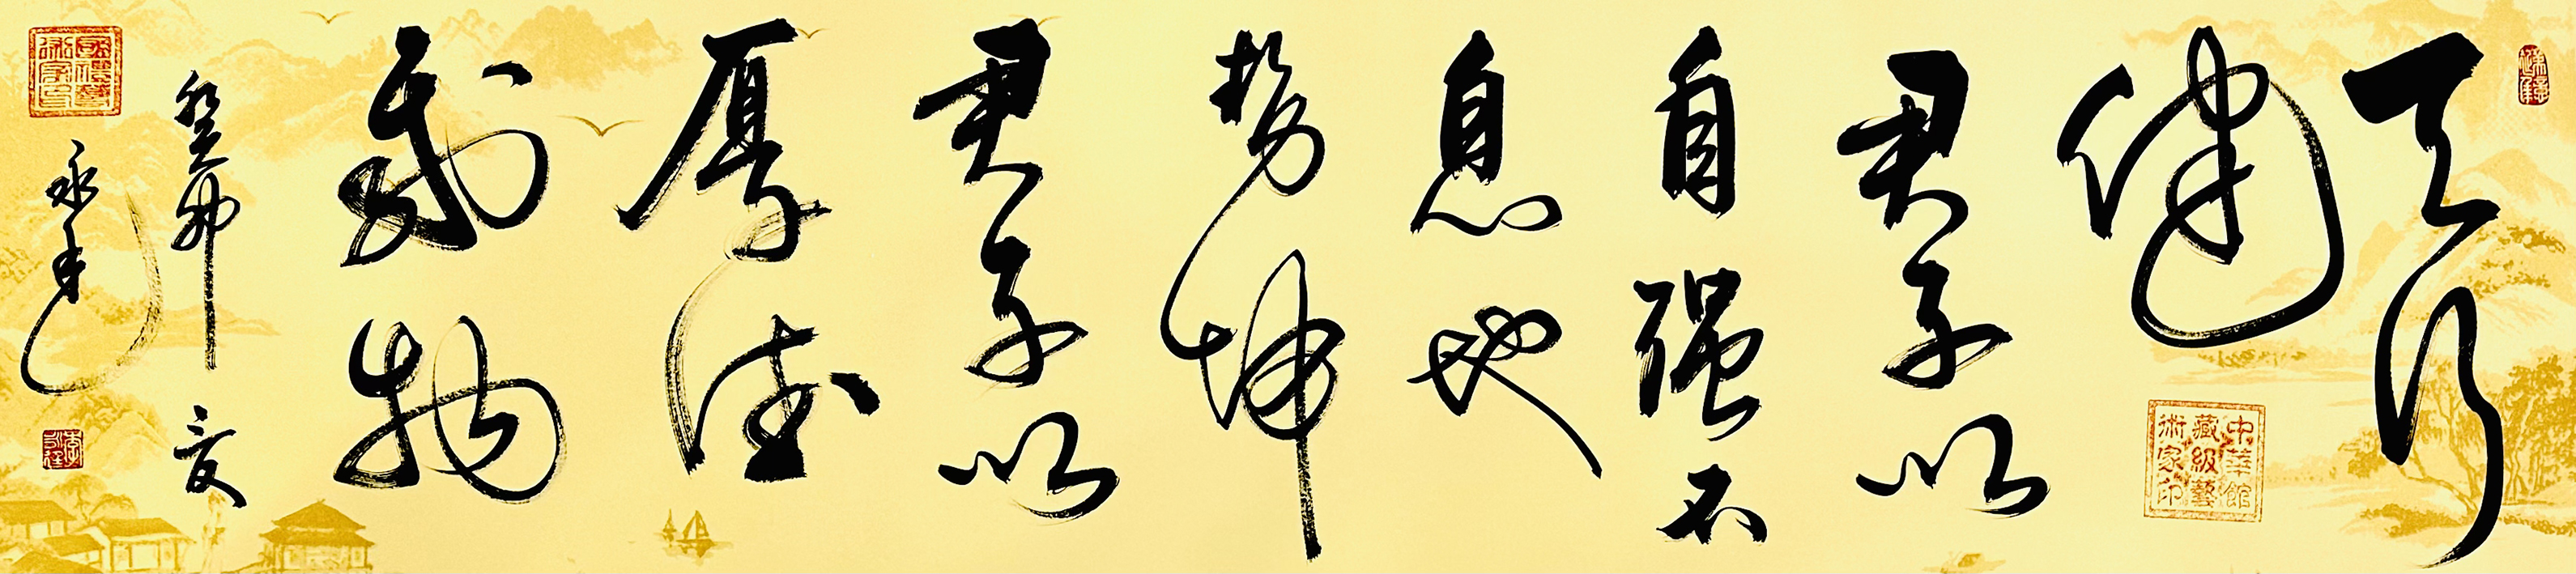 天行
健
中華館
藏級藝
術家印
君子以
自强不
息地
势坤
君子以
厚德
载物
癸卯夏
永